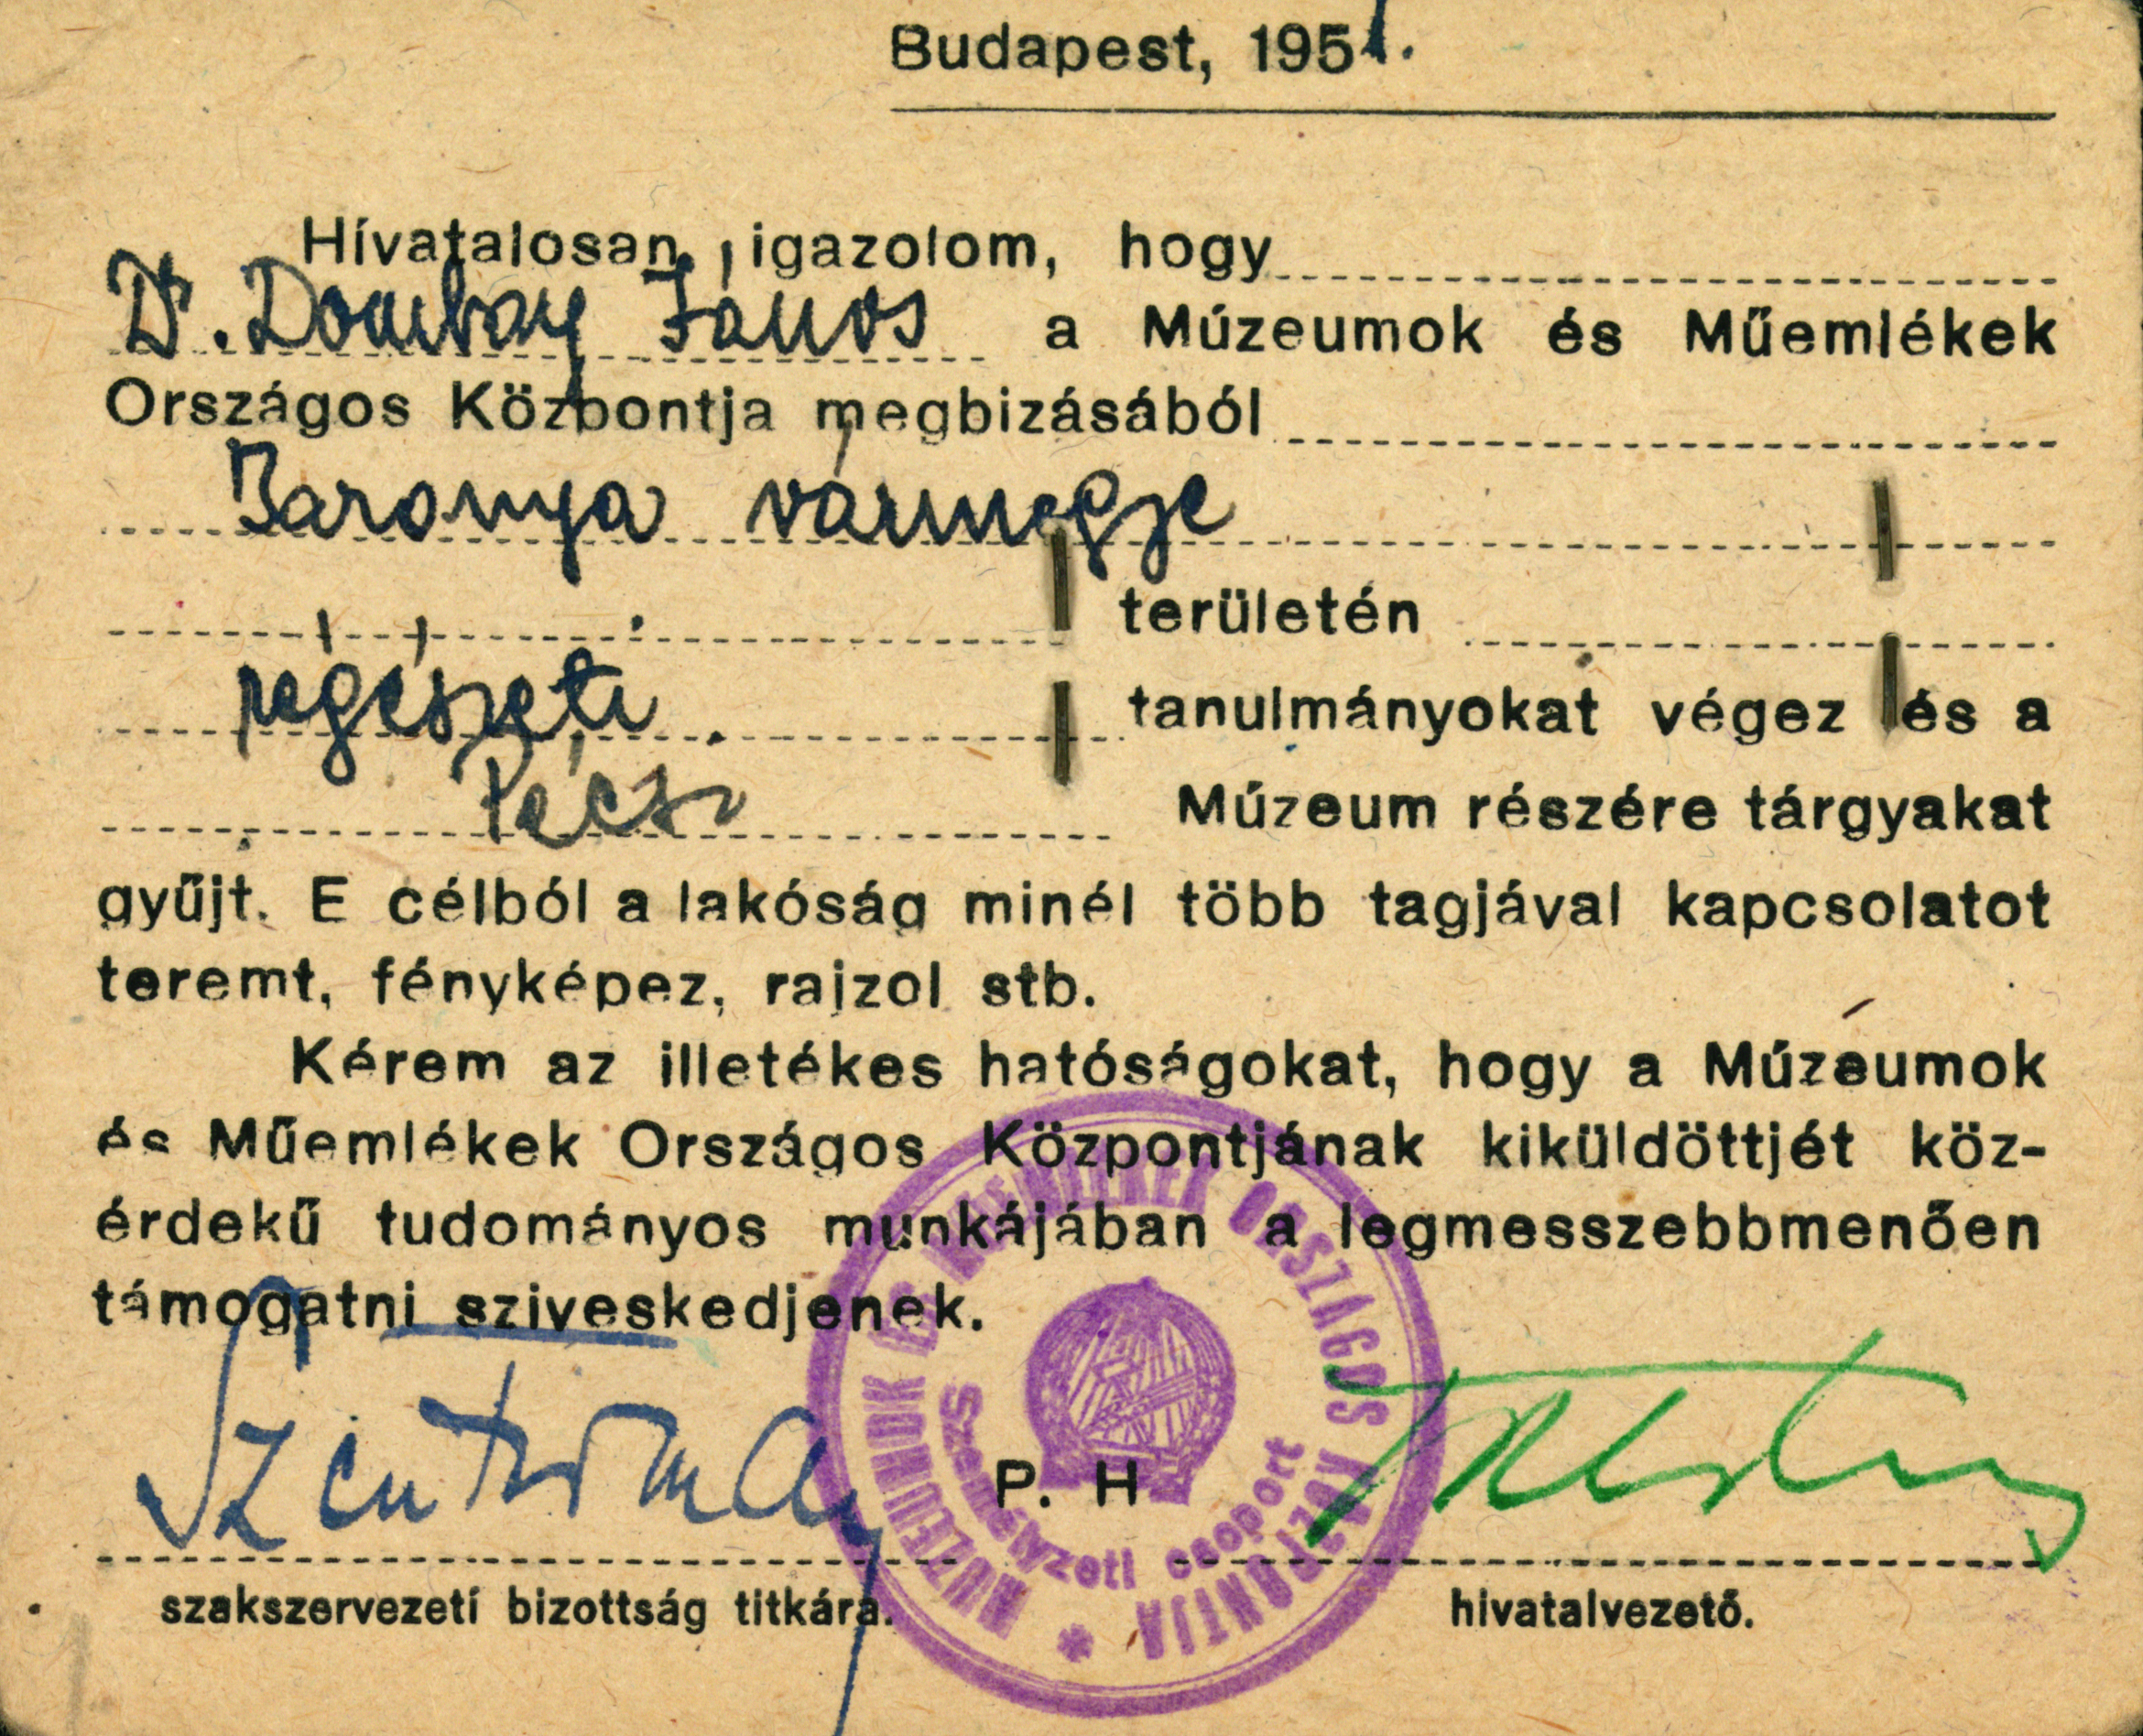 Budapest, 1951.
Hívatalosan igazolom, hogy
Dr. Dombay János a Múzeumok és Műemlékek
Országos Központja megbizásából
Baranya vármegye
területén
régészeti tanulmányokat végez és a
Pécsi Múzeum részére tárgyakat
gyűjt. E célból a lakóság minél több tagjával kapcsolatot
teremt, fényképez, rajzol stb.
Kérem az illetékes hatóságokat, hogy a Múzeumok
és Műemlékek Országos Központjának kiküldöttjét köz-
érdekű tudományos munkájában a legmesszebbmenően
támogatni sziveskedjenek.
MUZEUMOK ÉS MŰEMLÉKEK ORSZÁGOS KÖZPONTJA
személyzeti csoport
P. H
szakszervezetí bizottság titkára.
hivatalvezető.